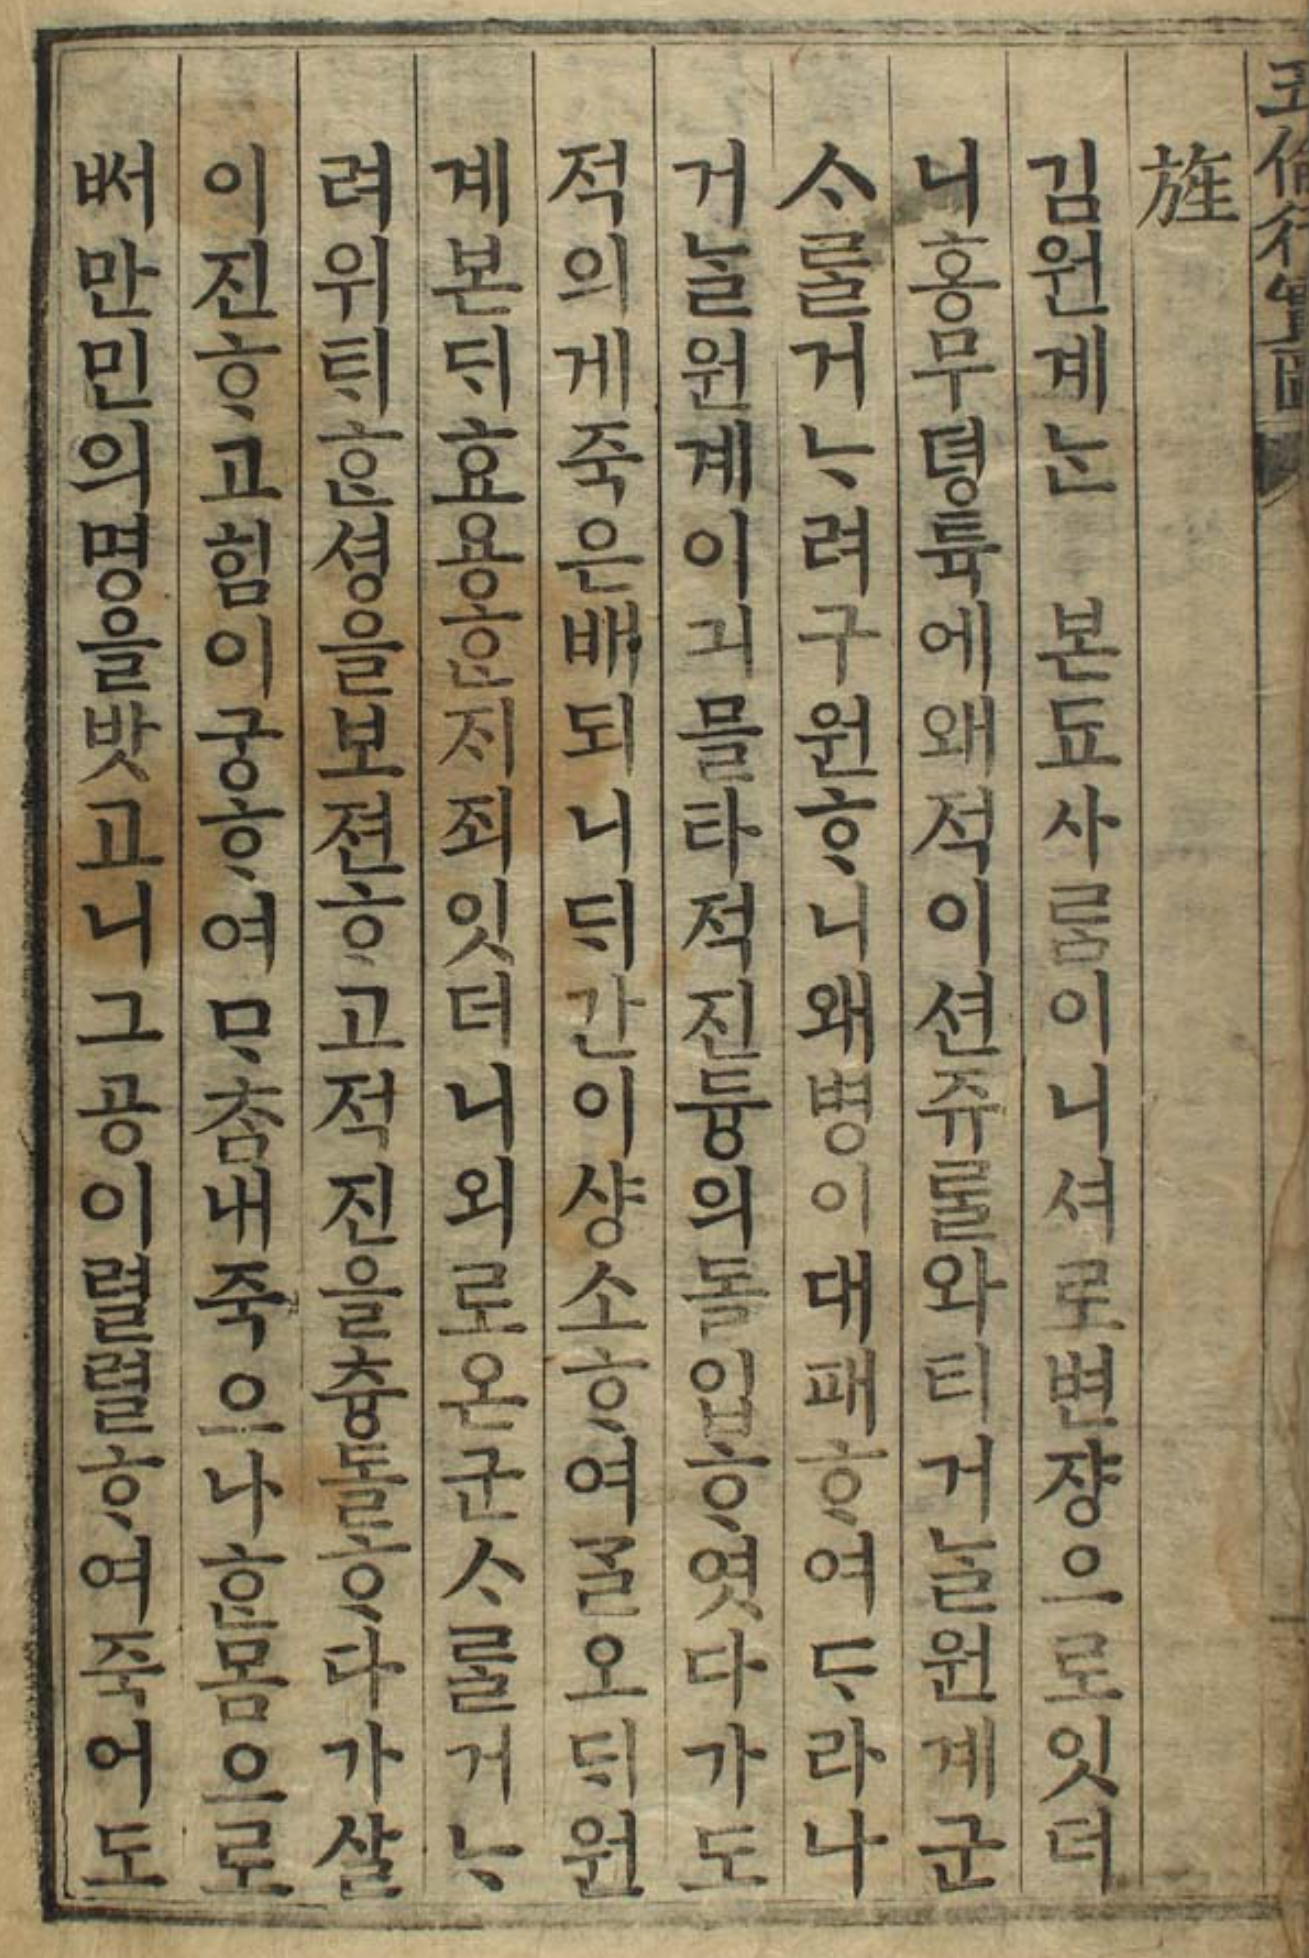 五倫行實圖
旌
김원계ᄂᆞᆫ 본됴사ᄅᆞᆷ이니셔로변쟝으로잇뎌
니홍무뎡튝에왜적이션쥬ᄅᆞᆯ와티거ᄂᆞᆯ원계군
ᄉᆞᄅᆞᆯ거ᄂᆞ려구원ᄒᆞ니왜병이대패ᄒᆞ여ᄃᆞ라나
거ᄂᆞᆯ원계이긔믈타적진듕의돌입ᄒᆞ엿다가도
적의게죽은배되니ᄃᆡ간이샹소ᄒᆞ여ᄀᆞᆯ오ᄃᆡ원
계본ᄃᆡ효용ᄒᆞᆫᄌᆡ죄잇뎌니외로온군ᄉᆞᄅᆞᆯ거ᄂᆞ
려위ᄐᆡᄒᆞᆫ셩을보젼ᄒᆞ고적진을츙돌ᄒᆞ다가살
이진ᄒᆞ고힘이궁ᄒᆞ여ᄆᆞᄎᆞᆷ내죽으나ᄒᆞᆫ몸으로
ᄡᅥ만민의명을밧고니그공이렬렬ᄒᆞ여죽어도